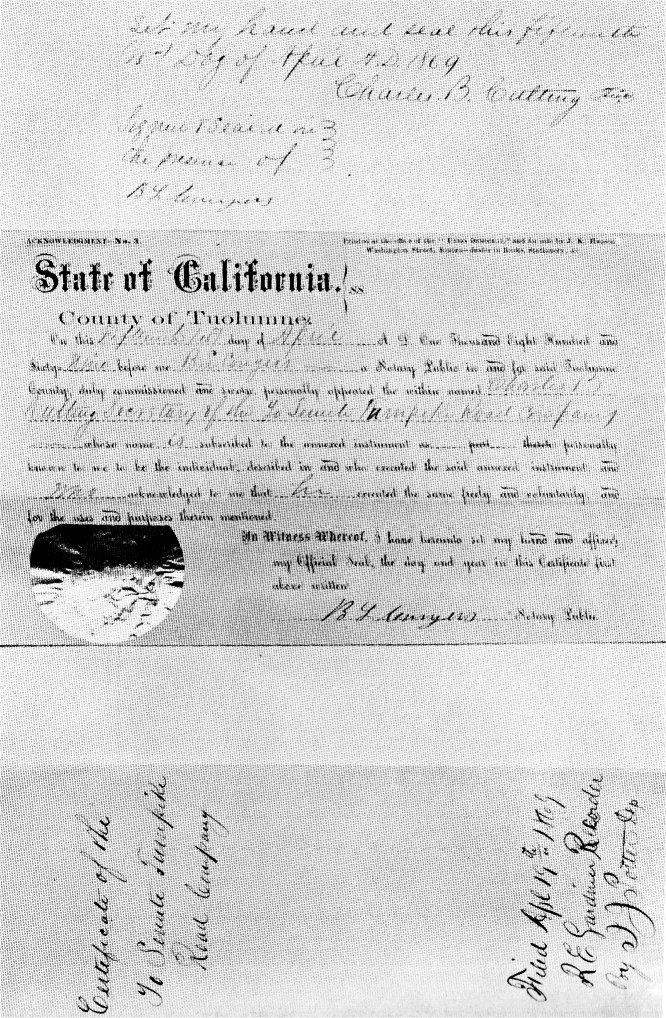 set my hand and seal this fifteenth
15th Day of April A.D. 1869
Charles B. Cutting
Signed & Sealed in
the presence of
B L Conyers
ACKNOWLEDGMENT—No. 3.
Printed at the office of the "Union Democrat," and for sale by J. K.
Washington Street, Sonora—dealer in Books, Stationery, &c
State of California. } ss
County of Tuolumne.
On this fifteenth day of April A. D. One Thousand Eight Hundred and
Sixty-Nine before me B L Conyers a Notary Public in and for said Tuolumne
County, duly commissioned and sworn, personally appeared the within named Charles B.
Cutting Secretary of the Yo Semite Turnpike Road Company
whose name is subscribed to the annexed instrument as part thereto personally
known to me to be the individual described in and who executed the said annexed instrument and
who acknowledged to me that he executed the same freely and voluntarily, and
for the uses and purposes therein mentioned.
In Witness Whereof, I have hereunto set my hand and affixed
my Official Seal, the day and year in this Certificate first
above written
B L Conyers Notary Public
Certificate of the
Yo Semite Turnpike
Road Company
Filed Apl 19th 1869
R E Gardiner Recorder
By J J Potter Dep